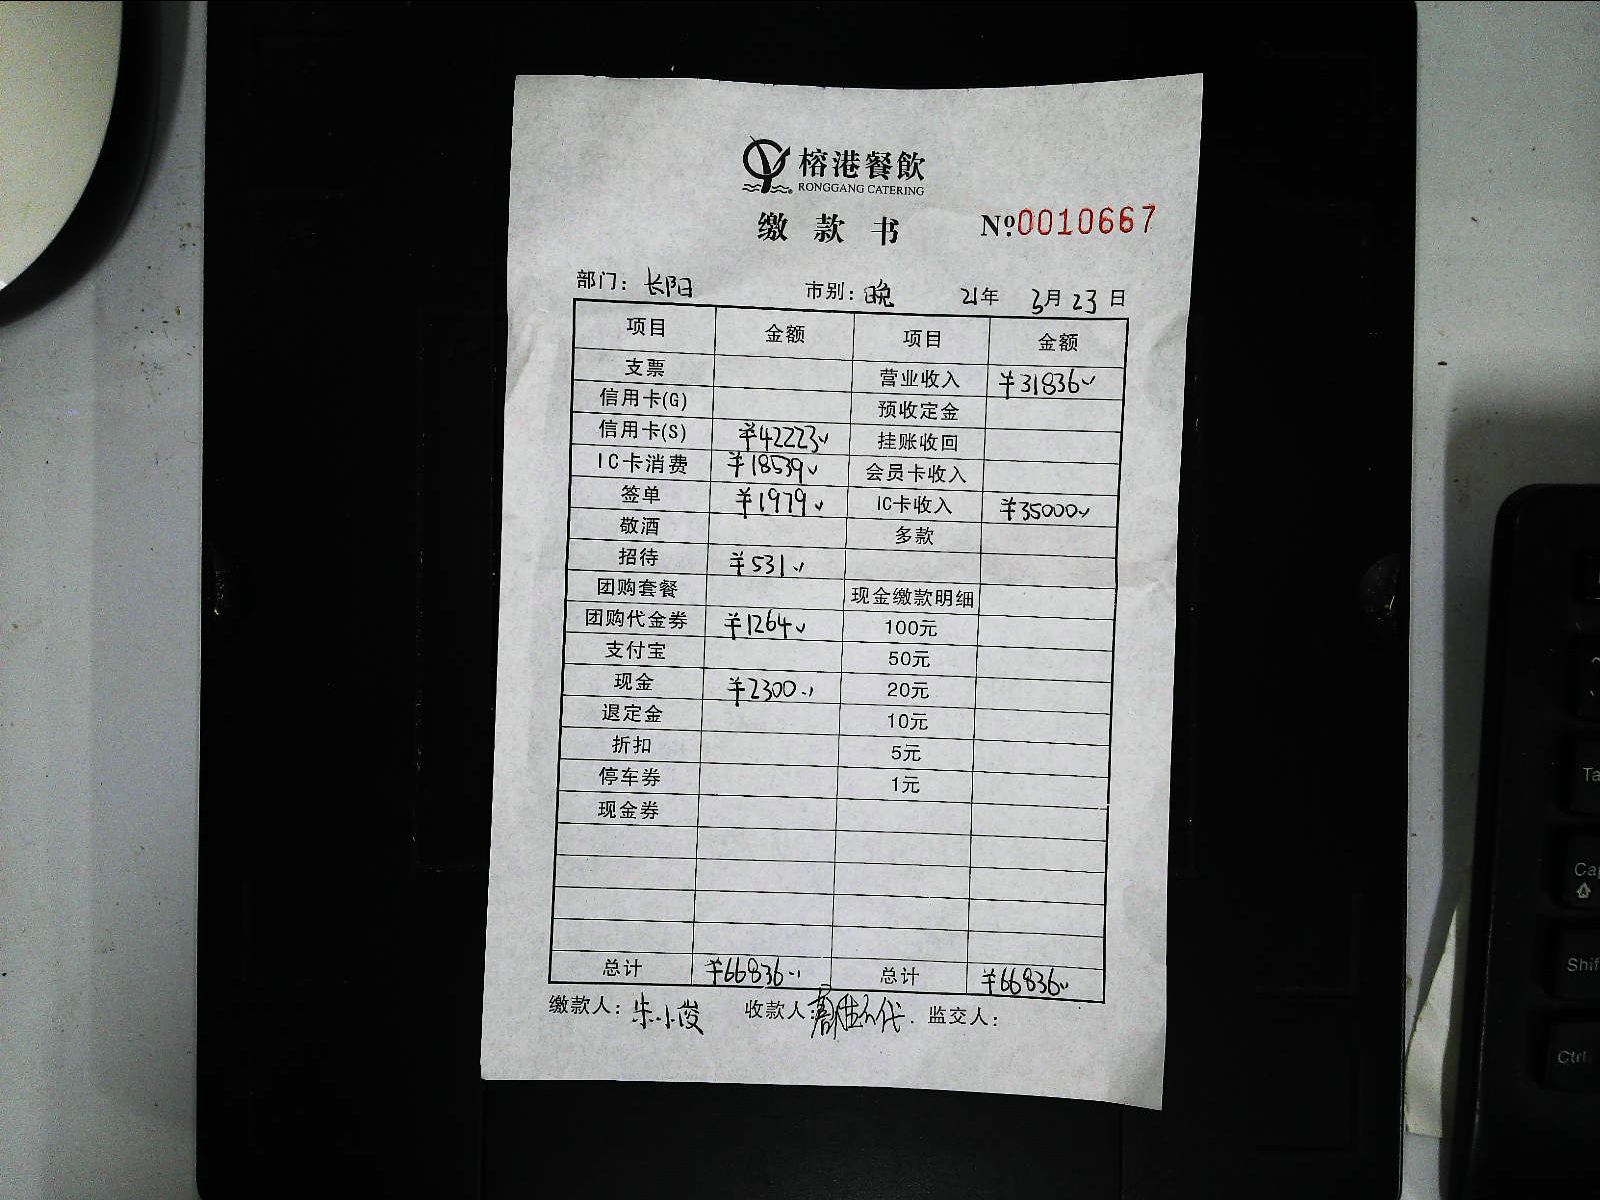 榕港餐飲
RONGGANG CATERING
缴款书 №0010667
部门: 长阳 市别: 晚 21年 3月 23日
项目 金额 项目 金额
支票 营业收入 ¥31836
信用卡(G) 预收定金
信用卡(S) ¥42223 挂账收回
IC卡消费 ¥18539 会员卡收入
签单 ¥1979 IC卡收入 ¥35000
敬酒 多款
招待 ¥531
团购套餐 现金缴款明细
团购代金券 ¥1264 100元
支付宝 50元
现金 ¥2300 20元
退定金 10元
折扣 5元
停车券 1元
现金券
总计 ¥66836 总计 ¥66836
缴款人: 朱小俊 收款人: 代 监交人:
Ta
Cap
Shif
Ctrl